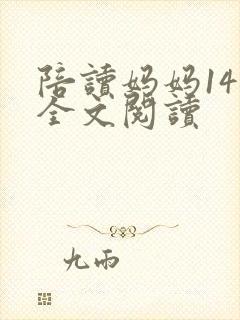 陪讀妈妈14
全文閱讀
九雨